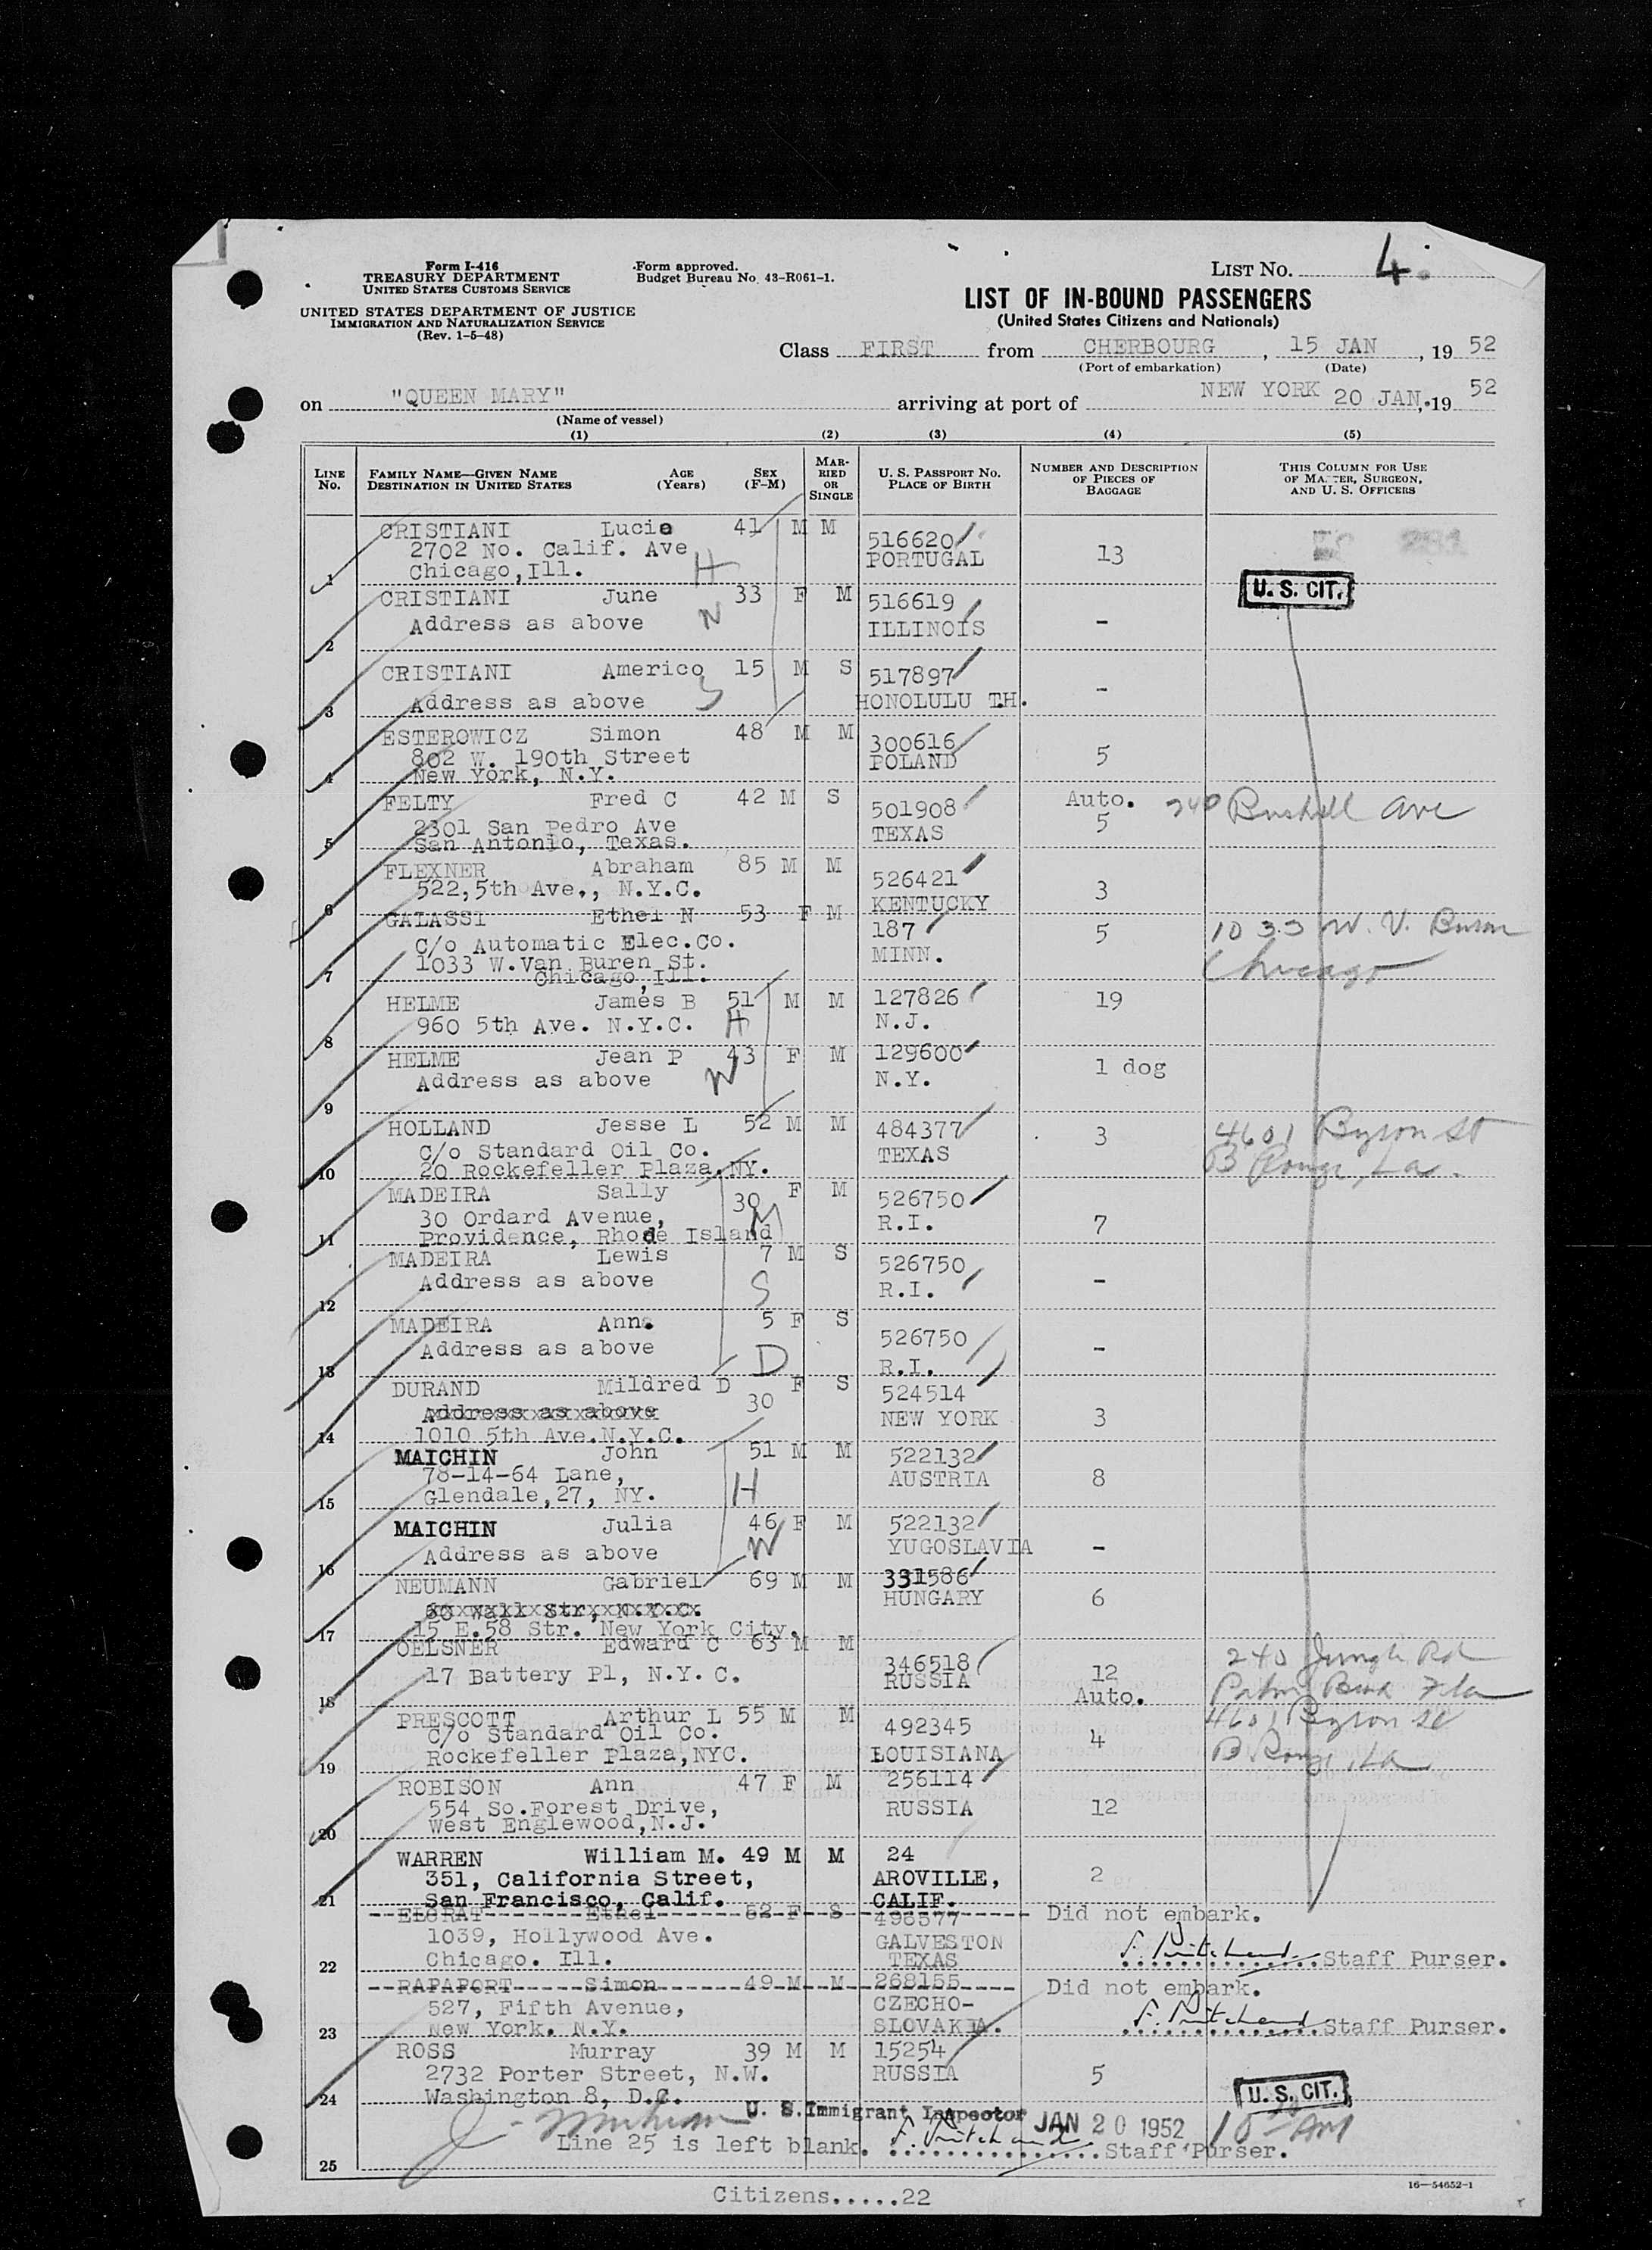 Form I-416
TREASURY DEPARTMENT
UNITED STATES CUSTOMS SERVICE
UNITED STATES DEPARTMENT OF JUSTICE
IMMIGRATION AND NATURALIZATION SERVICE
(Rev. 1-5-48)
Form approved.
Budget Bureau No. 43-R061-1.
LIST NO. 4.
LIST OF IN-BOUND PASSENGERS
(United States Citizens and Nationals)
Class FIRST from CHERBOURG, 15 JAN, 19 52
(Port of embarkation) (Date)
on "QUEEN MARY" arriving at port of NEW YORK 20 JAN, 19 52
(Name of vessel)
(1) (2) (3) (4) (5)
LINE NO. FAMILY NAME—GIVEN NAME DESTINATION IN UNITED STATES AGE (Years) SEX (F-M) MARRIED OR SINGLE U. S. PASSPORT NO. PLACE OF BIRTH NUMBER AND DESCRIPTION OF PIECES OF BAGGAGE THIS COLUMN FOR USE OF MASTER, SURGEON, AND U. S. OFFICERS
CRISTIANI Lucie 41 M M 516620
2702 No. Calif. Ave PORTUGAL 13
1 Chicago, Ill. H
U. S. CIT.
CRISTIANI June 33 F M 516619
Address as above W ILLINOIS -
2
CRISTIANI Americo 15 M S 517897
3 Address as above S HONOLULU T.H. -
ESTEROWICZ Simon 48 M M 300616
802 W. 190th Street POLAND 5
4 New York, N.Y.
FELTY Fred C 42 M S 501908 Auto. 240 Bushell Ave
2301 San Pedro Ave TEXAS 5
5 San Antonio, Texas.
FLEXNER Abraham 85 M M 526421
522,5th Ave., N.Y.C. KENTUCKY 3
6
GALASSI Ethel N 53 F M 187 5 1033 W. V. Buren
C/o Automatic Elec.Co. MINN. Chicago
1033 W.Van Buren St.
7 Chicago,Ill.
HELME James B 51 M M 127826 19
960 5th Ave. N.Y.C. H N.J.
8
HELME Jean P 43 F M 129600
Address as above W N.Y. 1 dog
9
HOLLAND Jesse L 52 M M 484377 3 4601 Byron St
C/o Standard Oil Co. TEXAS B Rouge, La.
10 20 Rockefeller Plaza, NY.
MADEIRA Sally 30 F M 526750
30 Ordard Avenue, M R.I. 7
11 Providence, Rhode Island
MADEIRA Lewis 7 M S 526750
Address as above S R.I. -
12
MADEIRA Ann. 5 F S 526750
Address as above D R.I. -
13
DURAND Mildred D 30 F S 524514
Address as above NEW YORK 3
14 1010 5th Ave.N.Y.C.
MAICHIN John 51 M M 522132
78-14-64 Lane, AUSTRIA 8
15 Glendale,27, NY. H
MAICHIN Julia 46 F M 522132
Address as above W YUGOSLAVIA -
16
NEUMANN Gabriel 69 M M 331586
60 Wall Str, N.Y.C. HUNGARY 6
17 15 E.58 Str. New York City.
OELSNER Edward C 63 M M 346518 240 Jungle Rd
17 Battery Pl, N.Y.C. RUSSIA 12 Palm Beach Fla
18 Auto.
PRESCOTT Arthur L 55 M M 492345 4601 Byron St
C/o Standard Oil Co. LOUISIANA 4 B Rouge, La
19 Rockefeller Plaza,NYC.
ROBISON Ann 47 F M 256114
554 So.Forest Drive, RUSSIA 12
20 West Englewood,N.J.
WARREN William M. 49 M M 24
351, California Street, AROVILLE, 2
21 San Francisco, Calif. CALIF.
ELGRAT Ethel 62 F S 496577 Did not embark.
1039, Hollywood Ave. GALVESTON
22 Chicago. Ill. TEXAS F. Pritchard Staff Purser.
RAPAPORT Simon 49 M M 268155 Did not embark.
527, Fifth Avenue, CZECHO-
23 New York. N.Y. SLOVAKIA. F. Pritchard Staff Purser.
ROSS Murray 39 M M 15254
2732 Porter Street, N.W. RUSSIA 5
24 Washington 8, D.C.
U. S. CIT.
U. S. Immigrant Inspector JAN 20 1952 AM
Line 25 is left blank. F. Pritchard Staff Purser.
25
16—54652-1
Citizens.....22